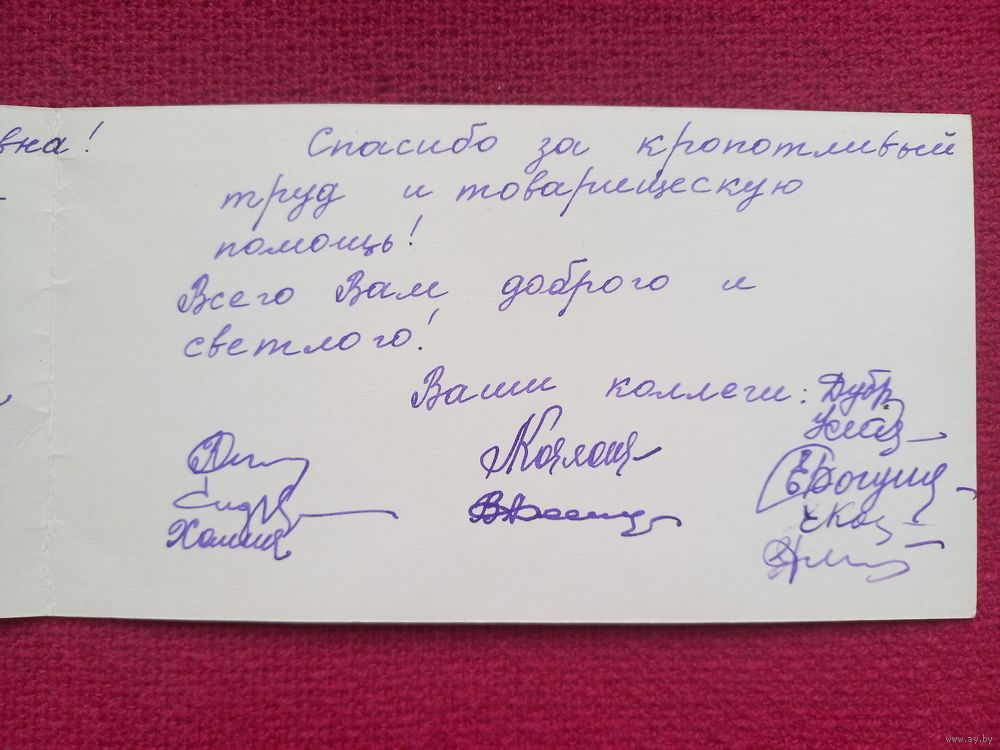 вна!
Спасибо за кропотливый
труд и товарищескую
помощь!
Всего Вам доброго и
светлого!
Ваши коллеги:
www.ay.by